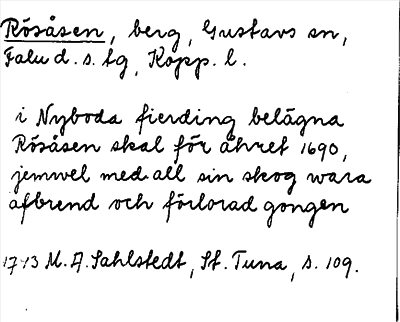 Rösåsen, berg, Gustavs sn,
Falu d. s. tg, Kopp. l.
i Nyboda fierding belägna
Rösåsen skal för åhret 1690,
jemwel med all sin skog wara
afbrend och förlorad gongen
1743 M. A. Sahlstedt, St. Tuna, s. 109.